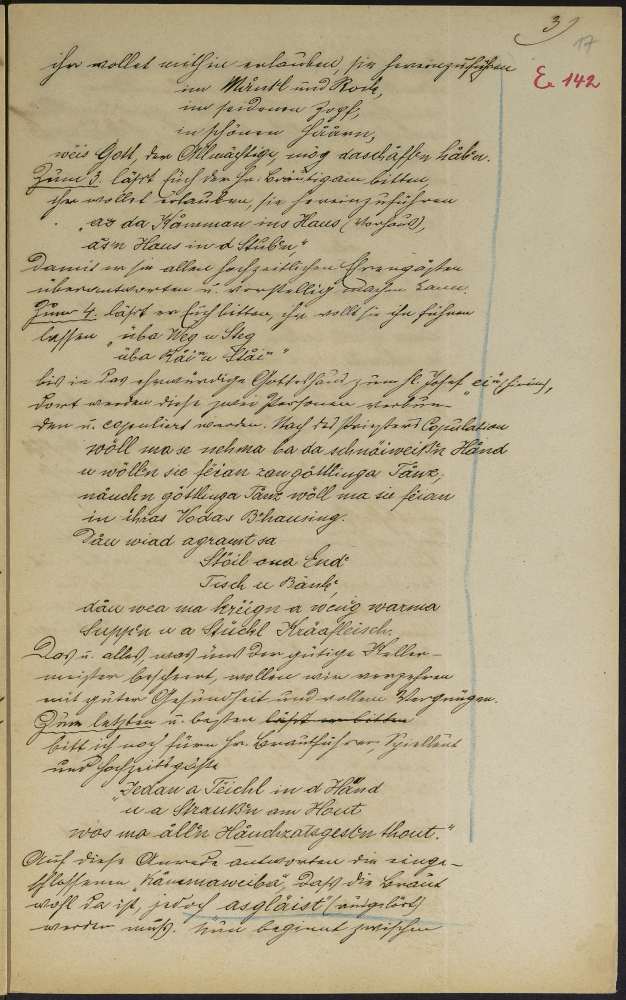 3)
17
E. 142
ihr wollet mithin erlauben, sie hereinzuführen
im Mäntl und Rock,
im seidenen Zopf,
in schönen Häärn,
wëis Gott, der Allmächtige, mög daschäff'n håb'n.
Zum 3. läßt Euch der Hr. Bräutigam bitten,
ihr wollet erlauben, sie hereinzuführen
„as da Kåmman ins Haus (Vorhaus),
äs'n Haus in d Stub'n,"
damit er sie allen hochzeitlichen Ehrengästen
überantworten u. vorstellig machen kann.
Zum 4. läßt er Euch bitten, ihr wollt sie ihn führen
lassen „üba Weg u Steg
üba Råin u Ståin"
bis in das ehrwürdige Gotteshaus zum hl. Josef
dort werden diese zwei Personen verbun-
den u. copuliert werden. Nach des Priesters Copulation
wöll ma se nehma ba da schnäiweiß'n Händ
u wöll'n sie feian zan göttlinga Tånz,
näuch'n göttlinga Tånz wöll ma sie feian
in ihras Vodas B'hausing.
Dåu wiad agramt sa
Stöil ona End'
Tisch u Bänk,
dåu wea ma kröign a wenig warma
Supp'n u a Stückl Kråafleisch.
Das u. alles was uns der gütige Keller-
meister beschert, wollen wir verzehren
mit guter Gesundheit und vollem Vergnügen.
Zum letzten u. besten läßt er bitten
bitt ich noch fürn Hr. Brautführer, Spielleut
und Hochzeitsgäste
„Jedan a Teichl in d Händ
u a Strauß'n am Hout
wos ma åll'n Håuchzatsgest'n thout."
Auf diese Anrede antworten die einge-
schlossenen „Kåmmaweiba", daß die Braut
wohl da ist, jedoch „asgläist" (ausgelöst)
werden muß. Nun beginnt zwischen